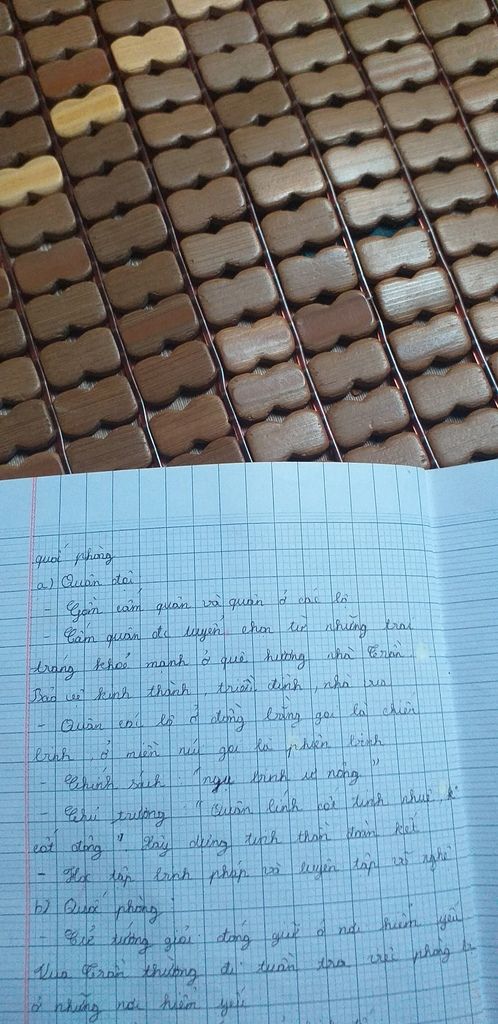 quốc phòng
a) Quân đội
- Gồm cấm quân và quân ở các lộ
- Cấm quân đc tuyển chọn từ những trai
tráng khoẻ mạnh ở quê hương nhà Trần
Bảo vệ kinh thành, triều đình, nhà vua
- Quân các lộ ở đồng bằng gọi là chính
binh, ở miền núi gọi là phiên binh
- Chính sách: "ngụ binh ư nông"
- Chủ trương: "Quân lính cốt tinh nhuệ, k
cốt đông". Xây dựng tinh thần đoàn kết
- Học tập binh pháp và luyện tập võ nghệ
b) Quốc phòng:
- Cử tướng giỏi đóng giữ ở nơi hiểm yếu
Vua Trần thường đi tuần tra việc phòng bị
ở những nơi hiểm yếu